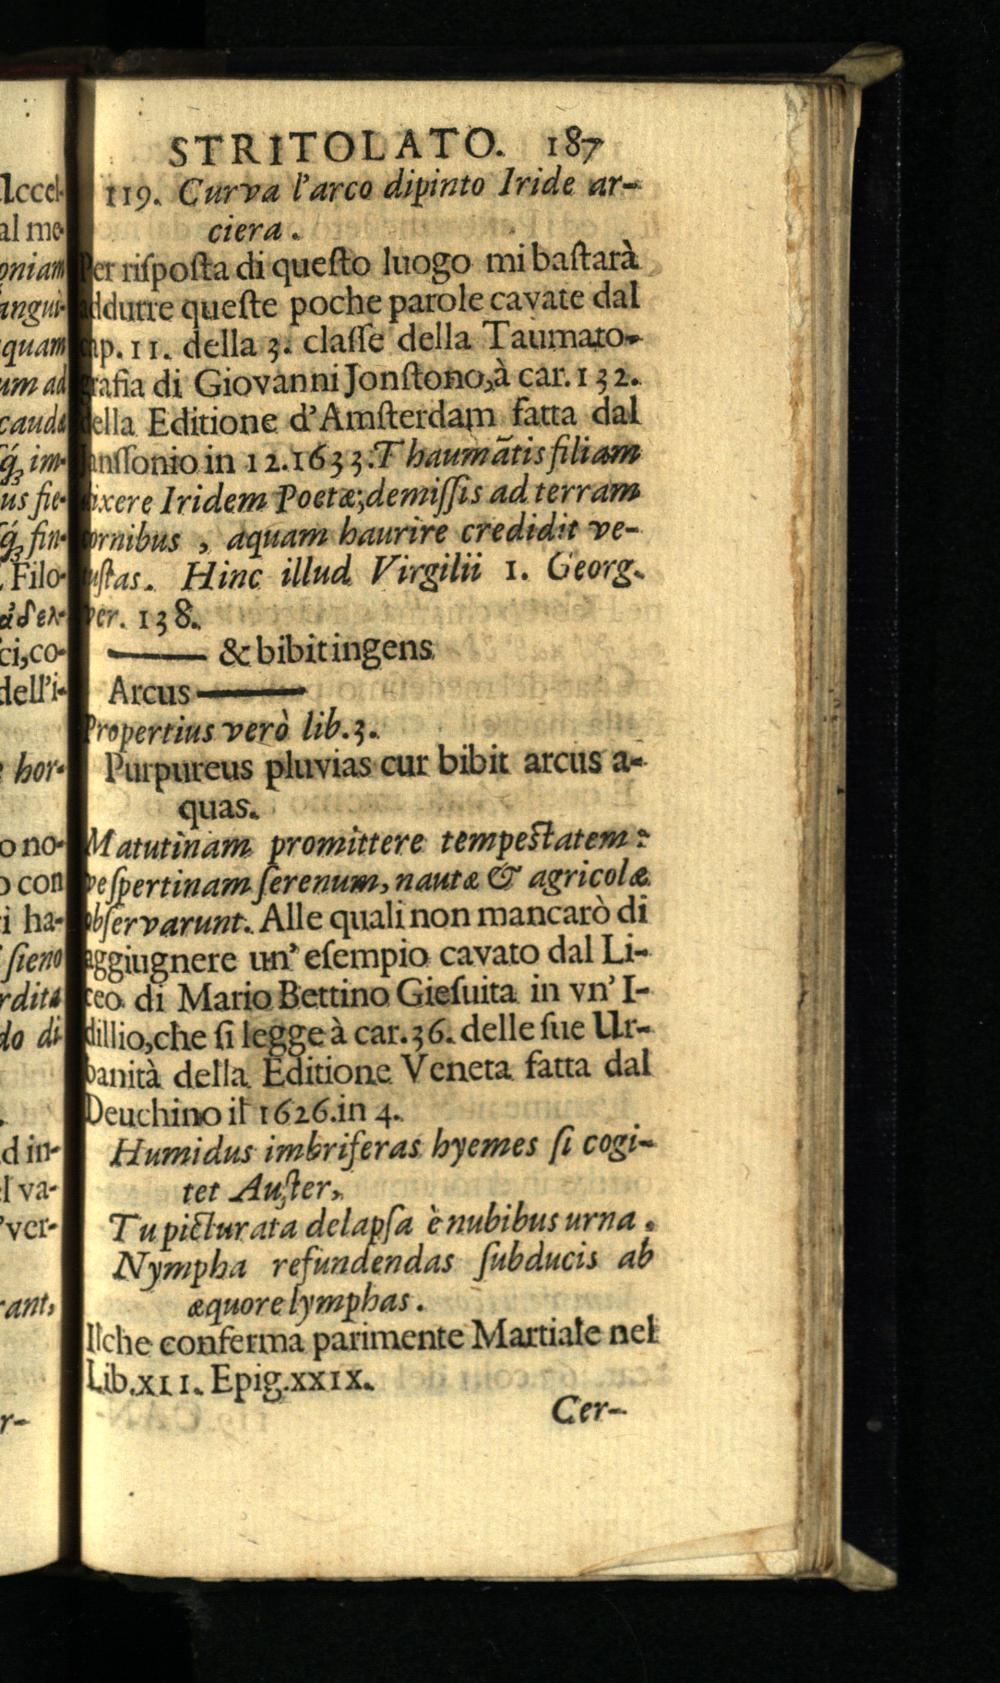 STRITOLATO. 187
119. Curva l'arco dipinto Iride ar-
ciera.
Per risposta di questo luogo mi bastarà
addurre queste poche parole cavate dal
cap. 11. della 3. classe della Taumato-
grafia di Giovanni Jonstono, à car. 132.
della Editione d'Amsterdam fatta dal
Janssonio in 12. 1633. Thaumãtis filiam
dixere Iridem Poetæ; demissis ad terram
cornibus, aquam haurire credidit ve-
tustas. Hinc illud Virgilii 1. Georg.
ver. 138.
—— & bibit ingens
Arcus ——
Propertius verò lib. 3.
Purpureus pluvias cur bibit arcus a-
quas.
Matutinam promittere tempestatem:
vespertinam serenum, nautæ & agricolæ
observarunt. Alle quali non mancarò di
aggiugnere un' esempio cavato dal Li-
ceo di Mario Bettino Giesuita in vn' I-
dillio, che si legge à car. 36. delle sue Ur-
banità della Editione Veneta fatta dal
Deuchino il 1626. in 4.
Humidus imbriferas hyemes si cogi-
tet Auster,
Tu picturata delapsa è nubibus urna.
Nympha refundendas subducis ab
æquore lymphas.
Ilche conferma parimente Martiale nel
Lib. XII. Epig. XXIX.
Cer-